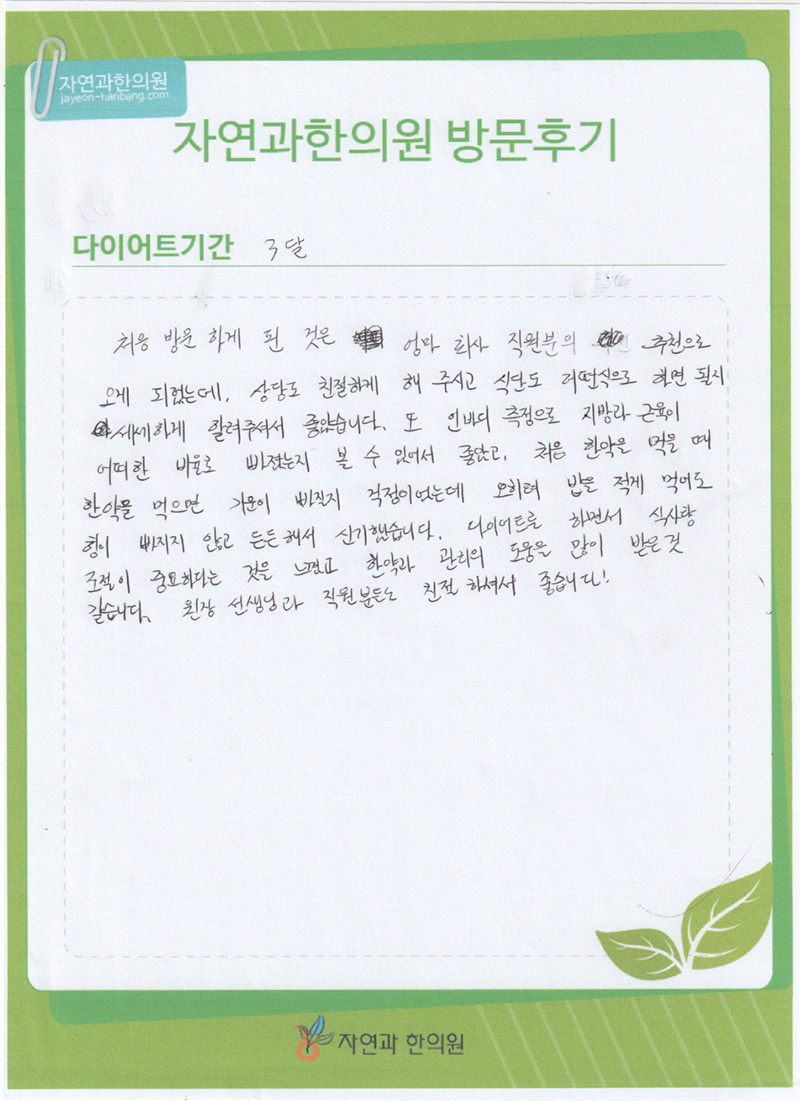 자연과한의원
jayeon-hanbang.com
자연과한의원 방문후기
다이어트기간 3달
처음 방문 하게 된 것은 엄마 회사 직원분의 추천으로
오게 되었는데, 상담도 친절하게 해 주시고 식단도 어떤식으로 하면 될지
세세하게 알려주셔서 좋았습니다. 또 인바디 측정으로 지방과 근육이
어떠한 비율로 빠졌는지 볼 수 있어서 좋았고, 처음 한약을 먹을 때
한약을 먹으면 기운이 빠질지 걱정이었는데 오히려 밥을 적게 먹어도
힘이 빠지지 않고 든든해서 신기했습니다. 다이어트를 하면서 식사량
조절이 중요하다는 것을 느꼈고 한약과 관리의 도움을 많이 받은것
같습니다. 원장 선생님과 직원분들도 친절 하셔서 좋습니다!
자연과 한의원